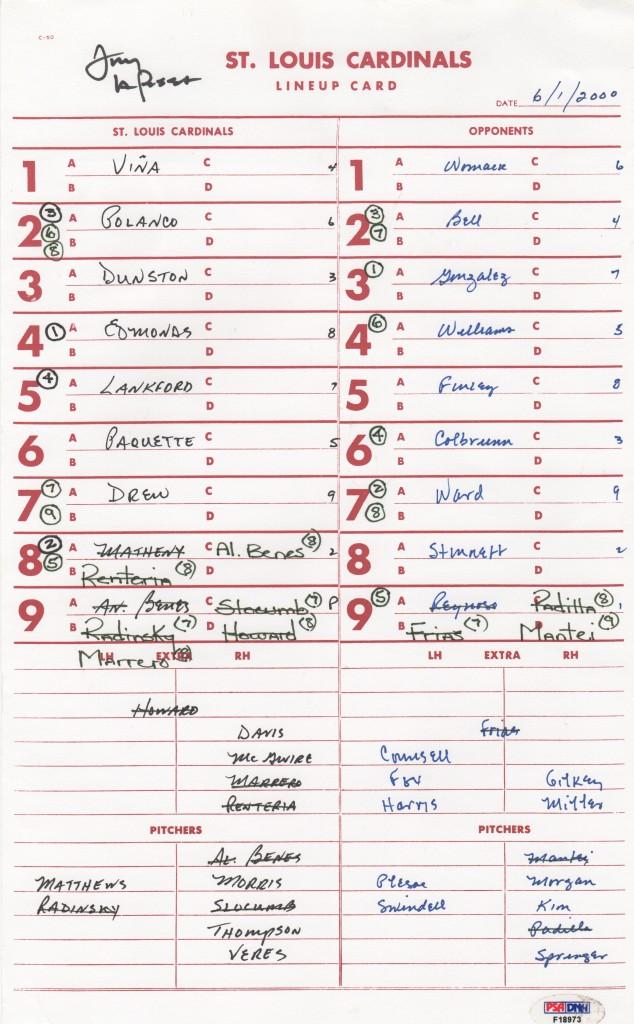 C-50
ST. LOUIS CARDINALS
LINEUP CARD
DATE 6/1/2000
ST. LOUIS CARDINALS
1 A VIÑA C 4
B D
2 ③ ⑥ ⑧ A POLANCO C 6
B D
3 A DUNSTON C 3
B D
4 ① A EDMONDS C 8
B D
5 ④ A LANKFORD C 7
B D
6 A PAQUETTE C 5
B D
7 ⑦ ⑨ A DREW C 9
B D
8 ② ⑤ A MATHENY C Al. Benes ⑧ 2
B Renteria ⑧ D
9 A An. BENES C Slocumb ⑦ P
B Radinsky ⑦ D Howard ⑧
Marrero ⑧
LH EXTRA RH
HOWARD
DAVIS
McGWIRE
MARRERO
RENTERIA
PITCHERS
AL. BENES
MATTHEWS MORRIS
RADINSKY SLOCUMB
THOMPSON
VERES
OPPONENTS
1 A Womack C 6
B D
2 ③ ⑦ A Bell C 4
B D
3 ① A Gonzalez C 7
B D
4 ⑥ A Williams C 5
B D
5 A Finley C 8
B D
6 ④ A Colbrunn C 3
B D
7 ② ⑧ A Ward C 9
B D
8 A Stinnett C 2
B D
9 ⑤ A Reynoso C Padilla ⑧ 1
B Frias ⑦ D Mantei ⑨
LH EXTRA RH
Frias
Counsell
Fox Gilkey
Harris Miller
PITCHERS
Mantei
Plesac Morgan
Swindell Kim
Padilla
Springer
PSA DNA
F18973